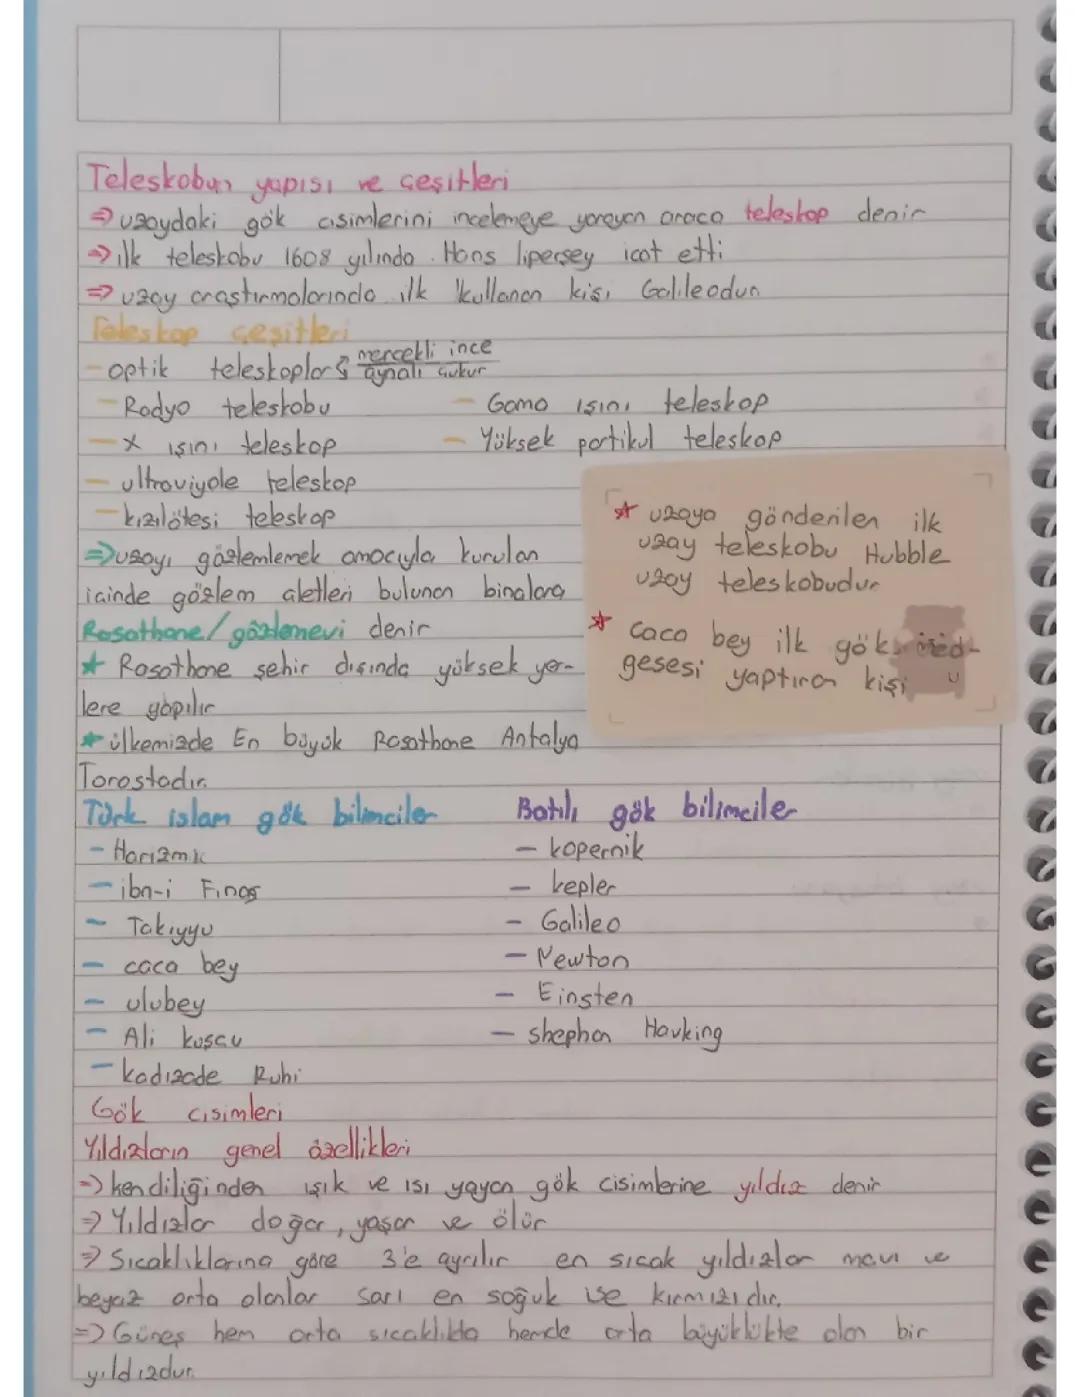 Teleskobun yapısı ve çeşitleri
⇒ uzaydaki gök cisimlerini incelemeye yarayan araca teleskop denir
⇒ ilk teleskobu 1608 yılında. Hans lipersey icat etti
⇒ uzay araştırmalarında ilk kullanan kişi Galileodur
Teleskop çeşitleri
- optik teleskoplar mercekli ince
aynalı çukur
- Radyo teleskobu - Gama ışını teleskop
- X ışını teleskop - Yüksek partikül teleskop
- ultraviyole teleskop
- kızılötesi teleskop
⇒ uzayı gözlemlemek amacıyla kurulan
içinde gözlem aletleri bulunan binalara
Rasathane/gözlemevi denir
★ Rasathane şehir dışında yüksek yer-
lere yapılır
★ ülkemizde En büyük Rasathane Antalya
Torostadır.
★ uzaya gönderilen ilk
uzay teleskobu Hubble
uzay teleskobudur
★ Caca bey ilk gök
gesesi yaptıran kişi
Türk islam gök bilimciler Batılı gök bilimciler
- Harizmi - kopernik
- ibn-i Finas - kepler
- Takıyyu - Galileo
- caca bey - Newton
- ulubey - Einsten
- Ali kuşçu - shephan Havking
- kadızade Ruhi
Gök cisimleri
Yıldızların genel özellikleri
⇒ kendiliğinden ışık ve ısı yayan gök cisimlerine yıldız denir
⇒ Yıldızlar doğar, yaşar ve ölür
⇒ Sıcaklıklarına göre 3'e ayrılır en sıcak yıldızlar mavi ve
beyaz orta olanlar sarı en soğuk ise kırmızıdır.
⇒ Güneş hem orta sıcaklıkta hemde orta büyüklükte olan bir
yıldızdır.